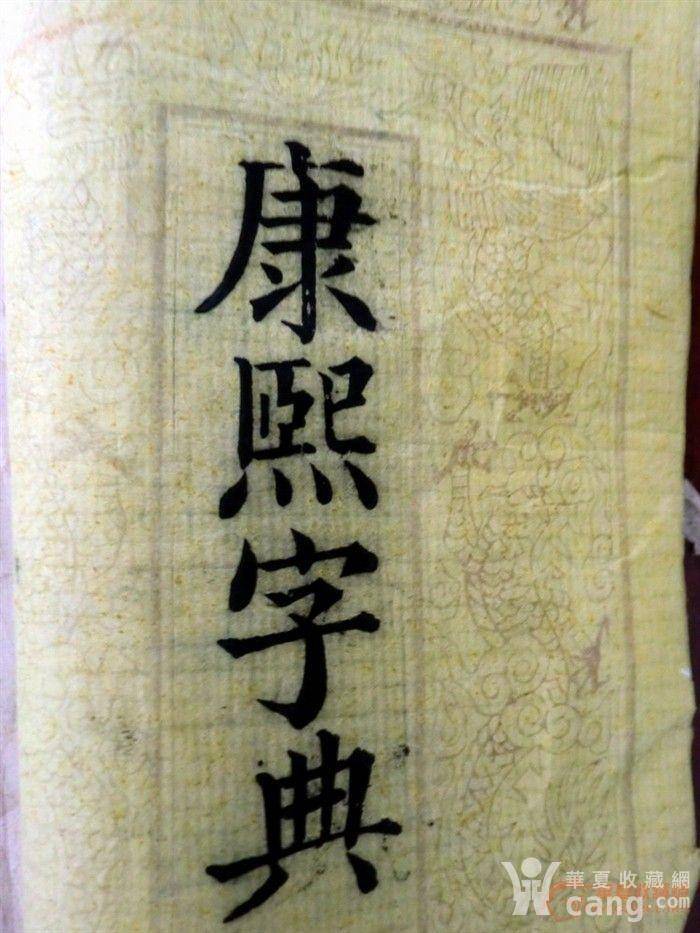 康熙字典
華夏收藏網
cang.com